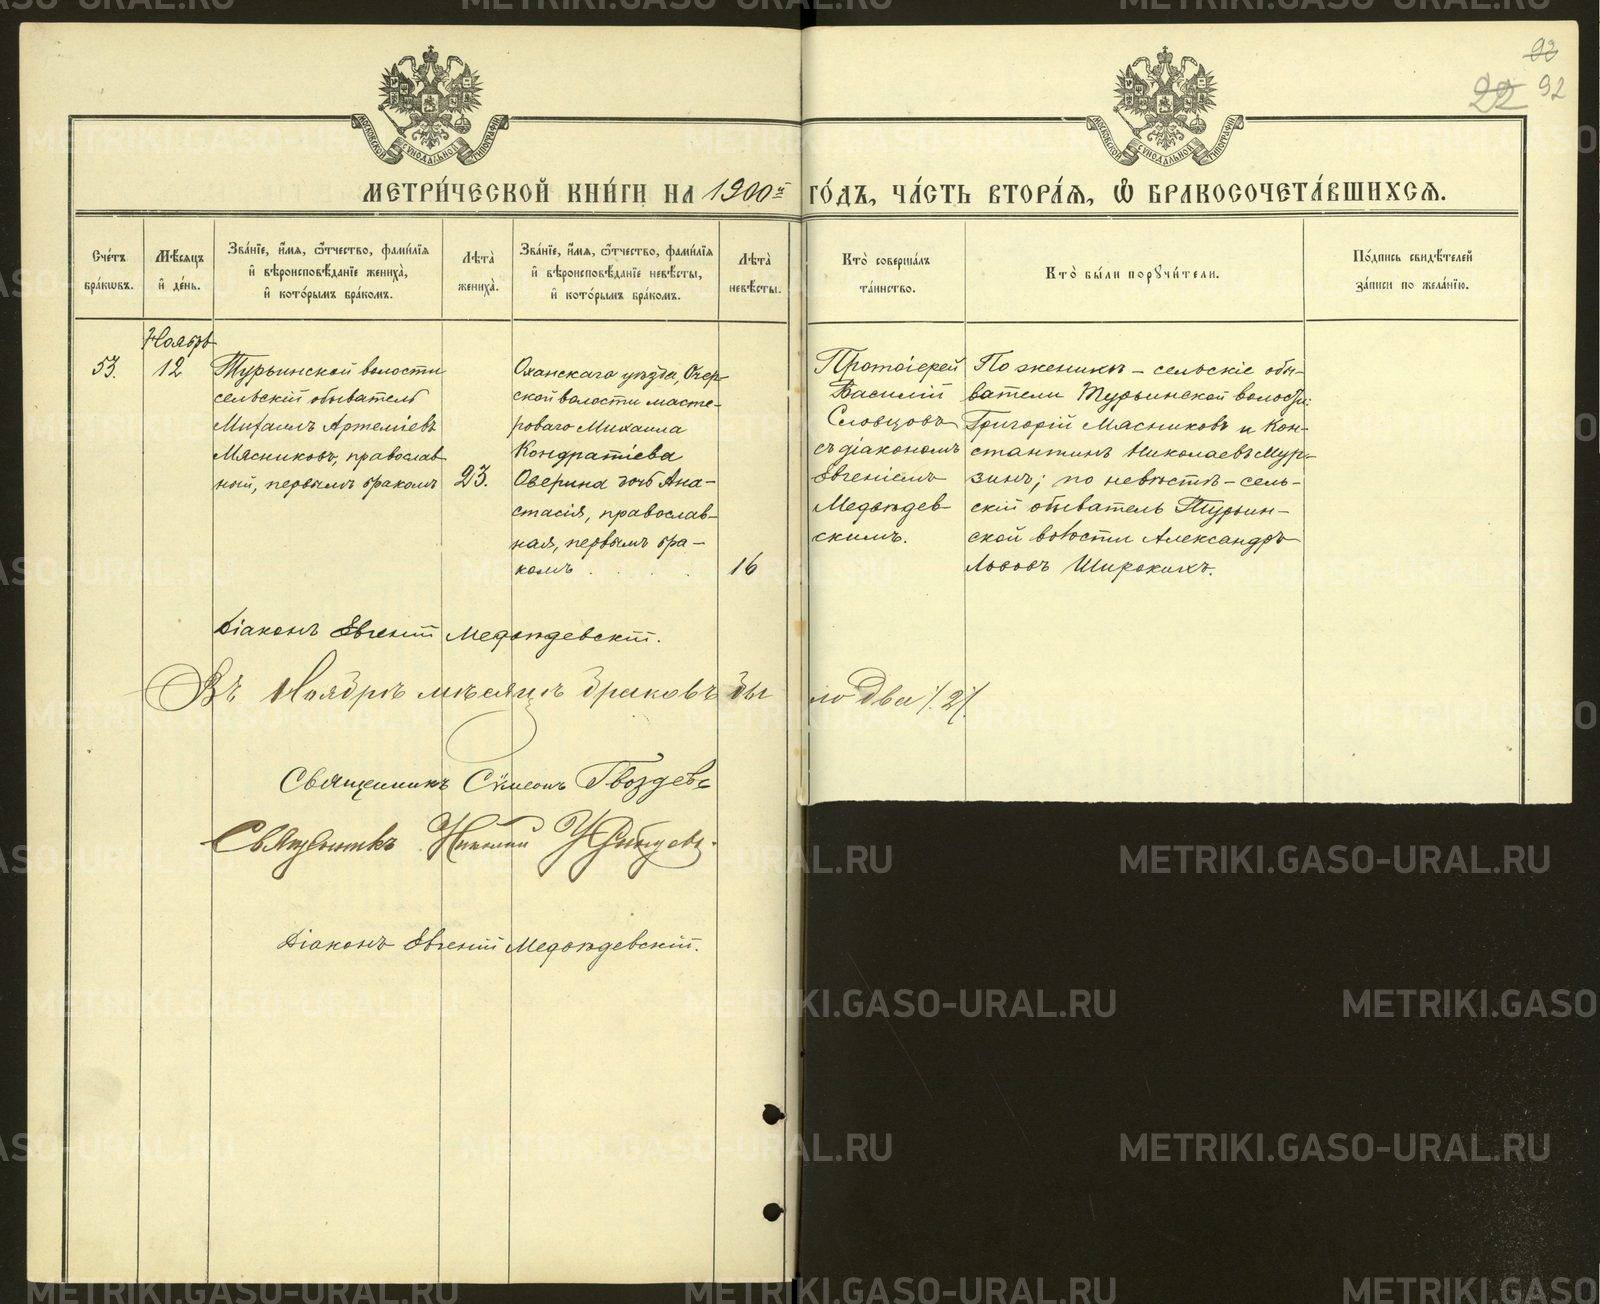 93
22 92
МОСКОВСКОЙ СУНОДАЛЬНОЙ ТИПОГРАФІИ
МОСКОВСКОЙ СУНОДАЛЬНОЙ ТИПОГРАФІИ
МЕТРИ́ЧЕСКОЙ КНИ́ГИ НА 1900й ГО́ДЪ, ЧА́СТЬ ВТОРА́Ѧ, Ѡ БРАКОСОЧЕТА́ВШИХСѦ.
Сче́тъ бра́кѡвъ.
Мѣ́сѧцъ й де́нь.
Зва́нїе, и́мѧ, ѻ́тчество, фами́лїѧ й вѣроисповѣ́данїе жениха̀, й кото́рымъ бра́комъ.
Лѣта̀ жениха̀.
Зва́нїе, и́мѧ, ѻ́тчество, фами́лїѧ й вѣроисповѣ́данїе невѣ́сты, й кото́рымъ бра́комъ.
Лѣта̀ невѣ́сты.
Кто̀ соверша́лъ та́инство.
Кто̀ бы́ли порꙋчи́тели.
По́дпись свидѣ́телей за́писи по жела́нїю.
Ноябрь
53.
12
Турьинской волости
сельскій обыватель
Михаилъ Артеміевъ
Мясниковъ, православ
ный, первымъ бракомъ
23.
Оханскаго уѣзда, Очер-
ской волости масте-
роваго Михаила
Кондратіева
Оверина дочь Ана-
стасія, православ-
ная, первымъ бра-
комъ
16
Протоіерей
Василій
Словцовъ
съ діакономъ
Евгеніемъ
Медвѣдев
скимъ.
По женихѣ – сельскіе обы-
ватели Турьинской волости:
Григорій Мясниковъ и Кон-
стантинъ Николаевъ Мур-
зинъ; по невѣстѣ – сель-
скій обыватель Турьин-
ской волости Александръ
Львовъ Широкихъ.
Діаконъ Евгеній Медвѣдевскій.
Въ Ноябрѣ мѣсяцѣ браковъ бы ло два /.2/.
Священникъ Сѵмеонъ Гвоздевъ
Священникъ Николай
Діаконъ Евгеній Медвѣдевскій.
METRIKI.GASO-URAL.RU